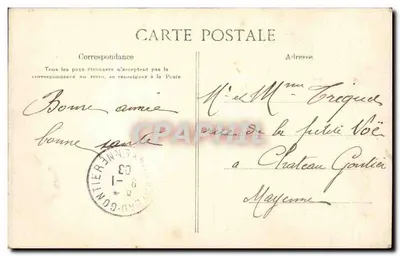 CARTE POSTALE
Correspondance
Tous les pays étrangers n'acceptent pas la
correspondance au recto, se renseigner à la Poste
Bonne année
bonne santé
Adresse
Mr et Mme
de la petite Voë
a Chateau Gontier
Mayenne
CHATEAU-GONTIER
MAYENNE
03